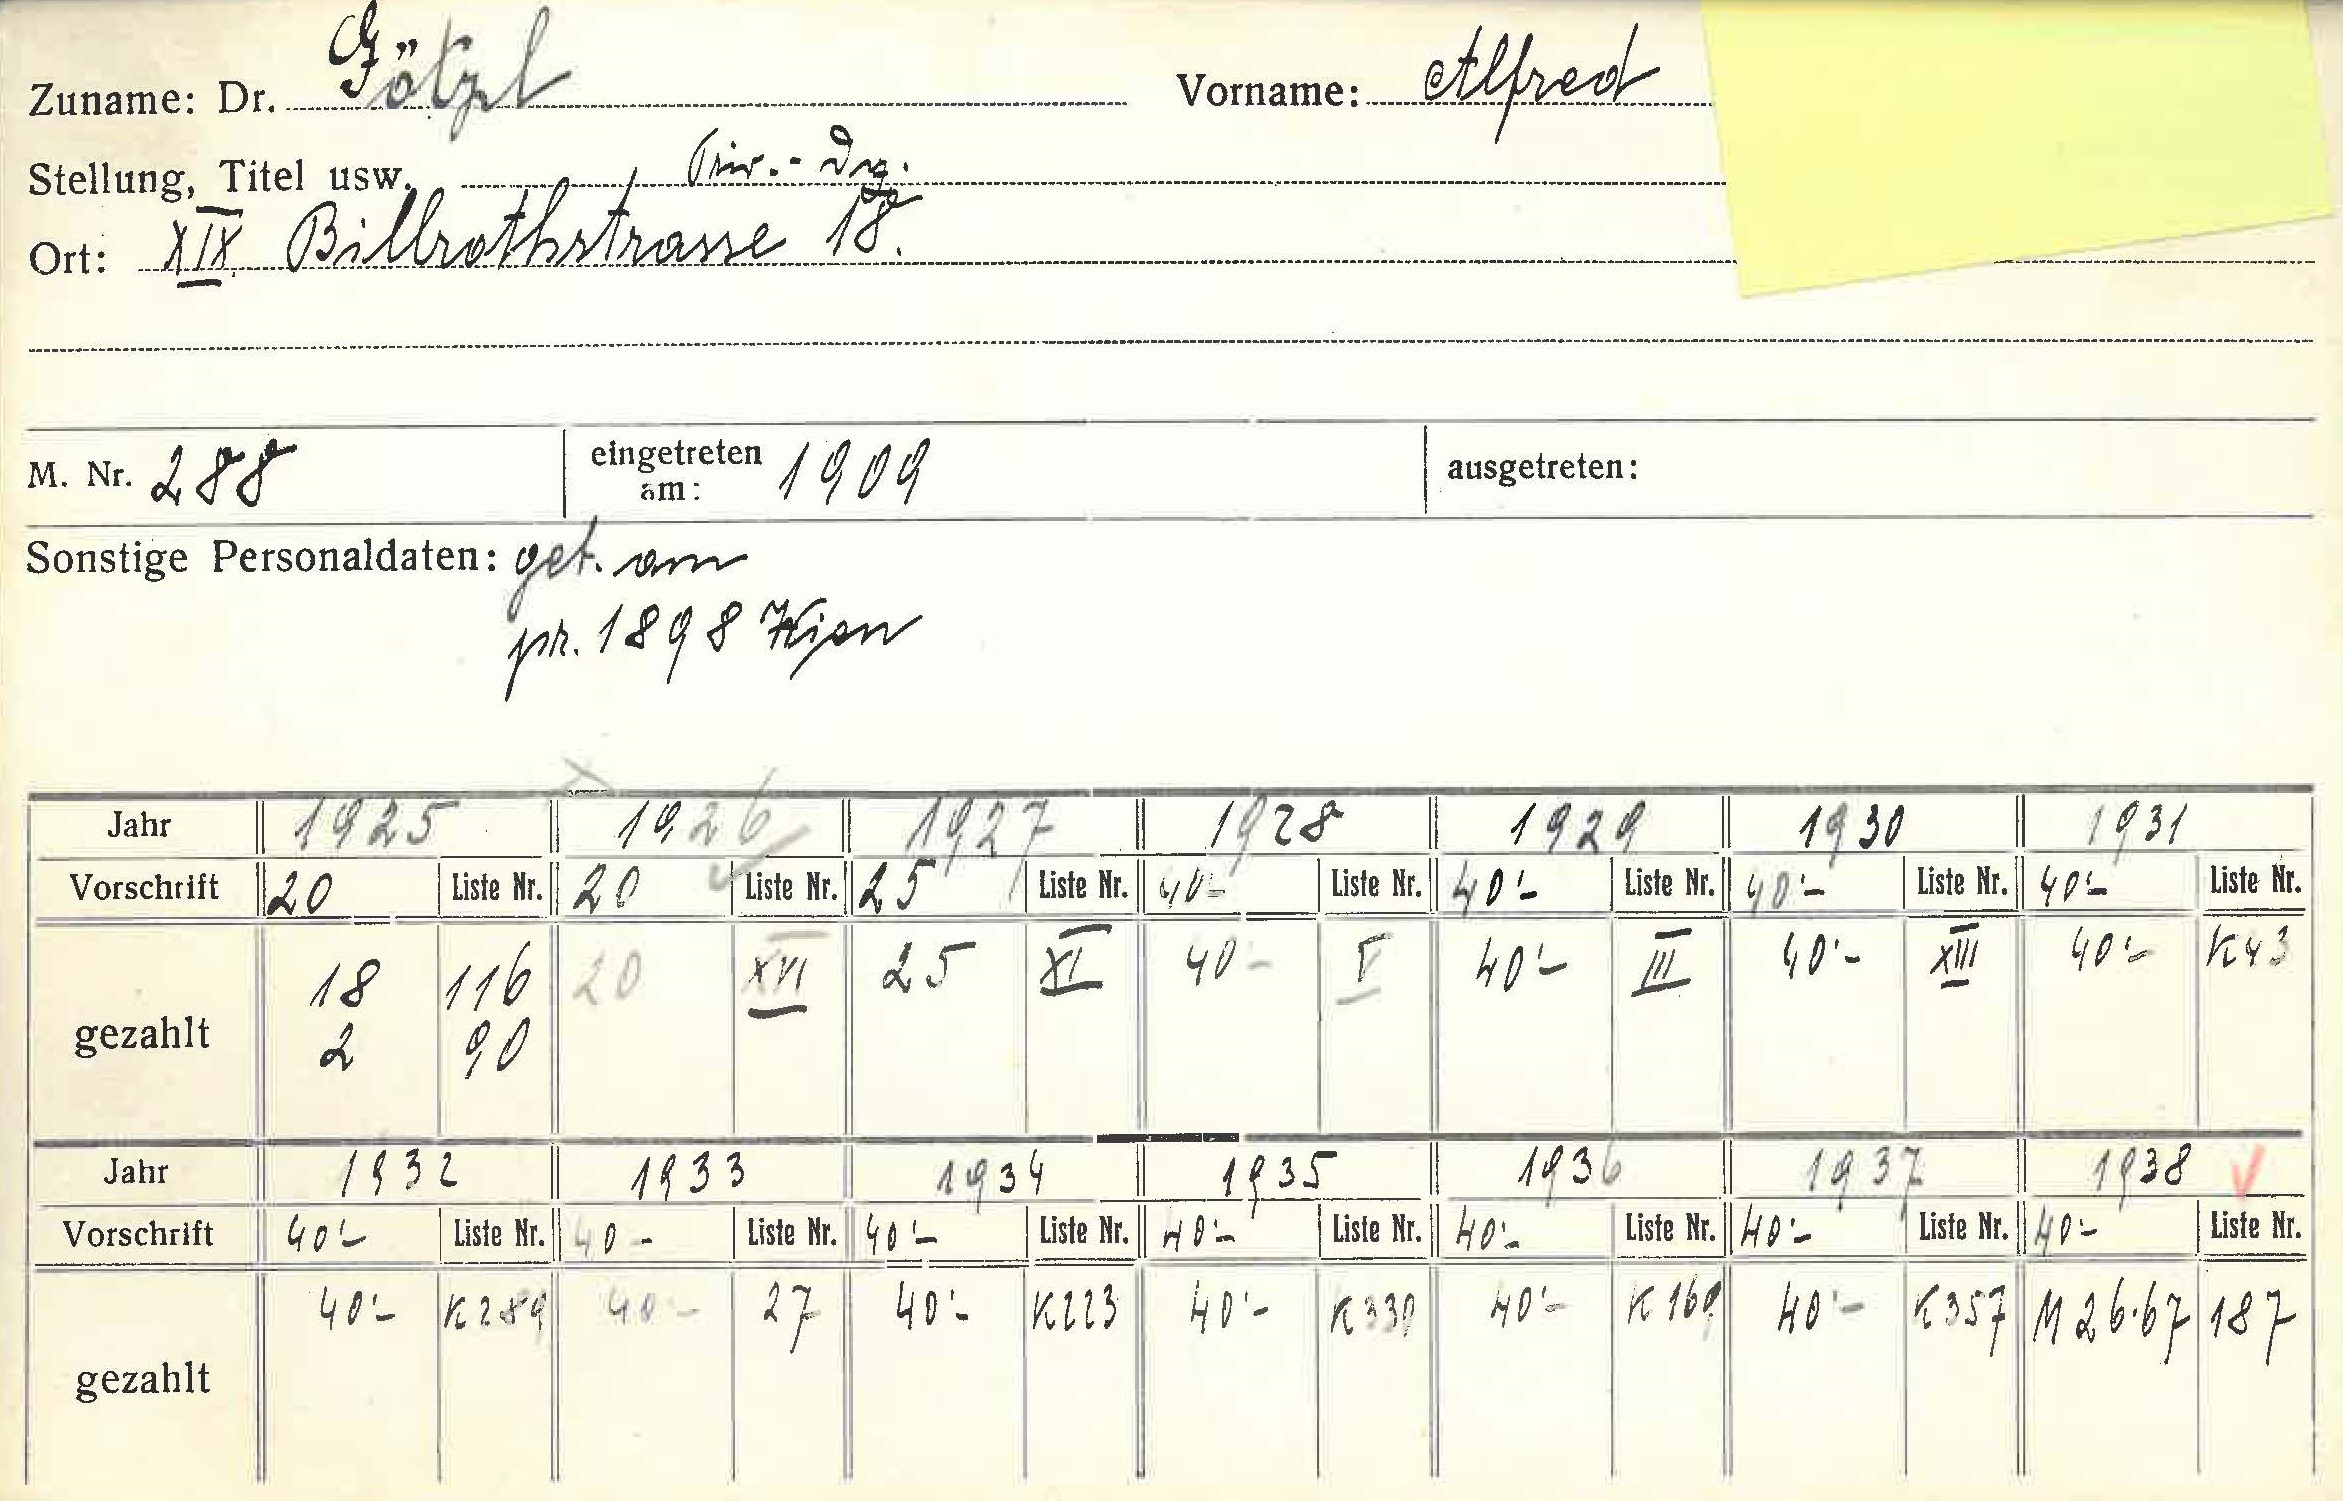 Zuname: Dr. Götzl Vorname: Alfred
Stellung, Titel usw. Priv.-Doz.
Ort: XIX Billrothstrasse 18.
M. Nr. 288 eingetreten am: 1909 ausgetreten:
Sonstige Personaldaten: geb. am
pr. 1898 Wien
Jahr 1925 1926 1927 1928 1929 1930 1931
Vorschrift 20 Liste Nr. 20 Liste Nr. 25 Liste Nr. 40'- Liste Nr. 40'- Liste Nr. 40'- Liste Nr. 40'- Liste Nr.
gezahlt 18 116 20 XVI 25 XI 40- V 40'- III 40'- XIII 40'- K43
2 90
Jahr 1932 1933 1934 1935 1936 1937 1938
Vorschrift 40'- Liste Nr. 40- Liste Nr. 40'- Liste Nr. 40'- Liste Nr. 40'- Liste Nr. 40'- Liste Nr. 40'- Liste Nr.
gezahlt 40'- K289 40- 27 40'- K223 40'- K330 40'- K169 40'- K357 M 26·67 187